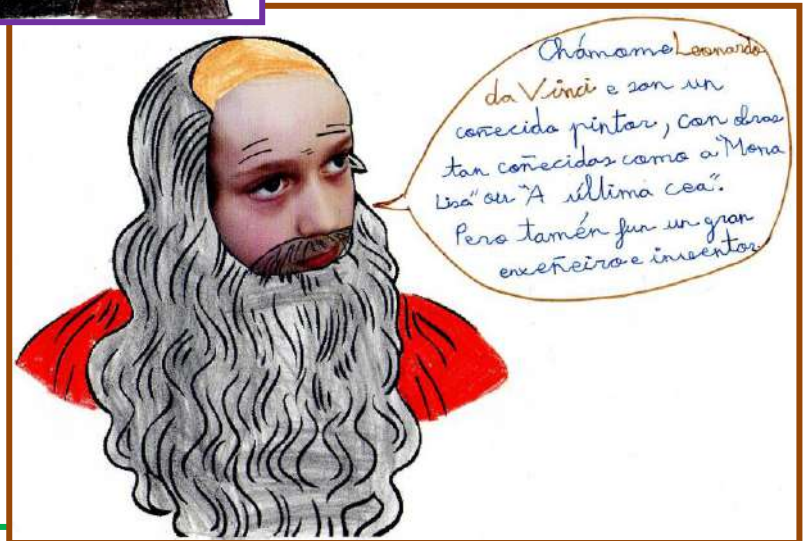 Chámome Leonardo
da Vinci e son un
coñecido pintor, con obras
tan coñecidas como a "Mona
Lisa" ou "A última cea".
Pero tamén fun un gran
enxeñeiro e inventor